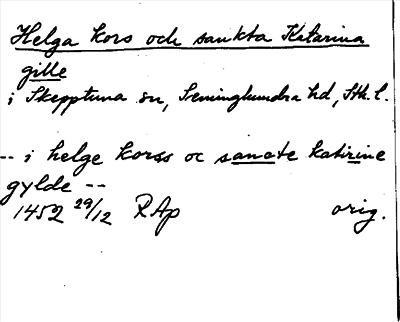 Helga kors och sankta Katarina
gille
i Skepptuna sn, Seminghundra hd, Sth. l.
-- i helge korss oc sancte katirine
gylde --
1452 29/12 RAp orig.